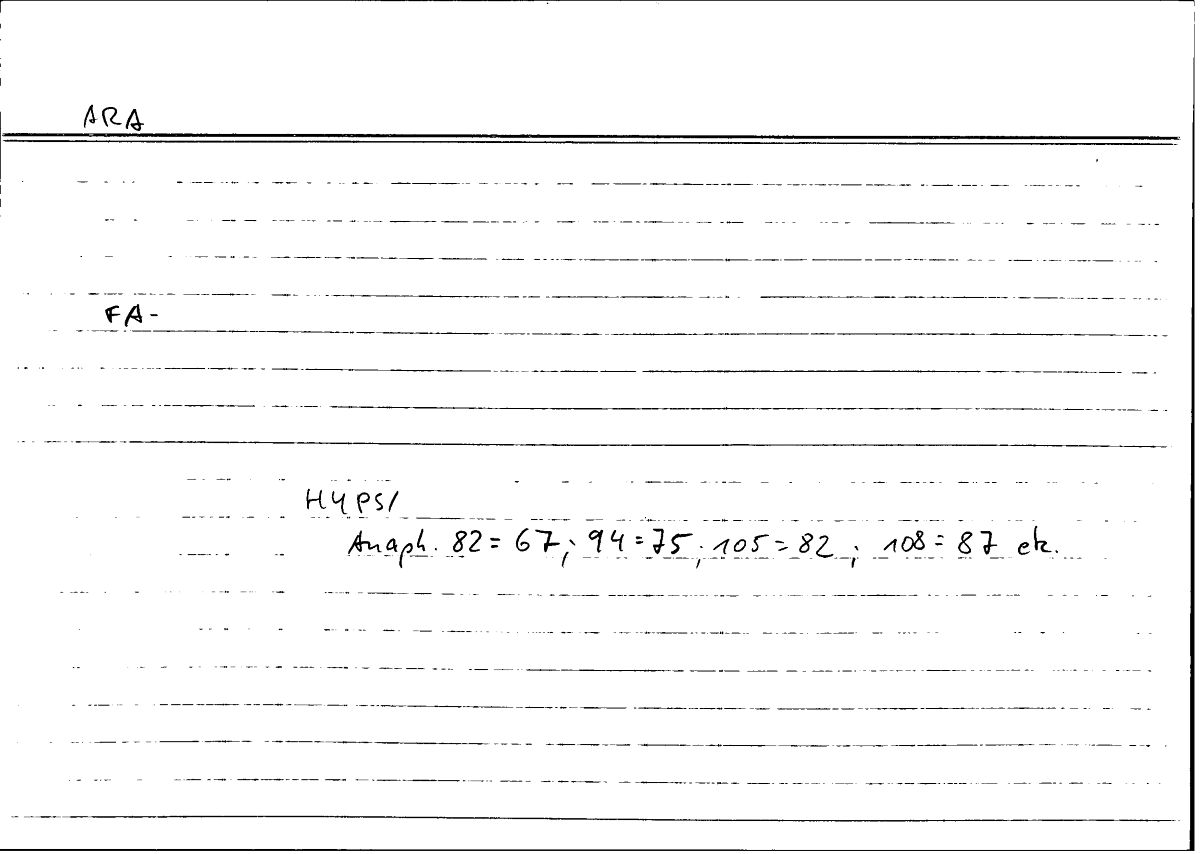 ARA
FA-
HYPS/
Anaph. 82 = 67; 94 = 75; 105 = 82; 108 = 87 etc.